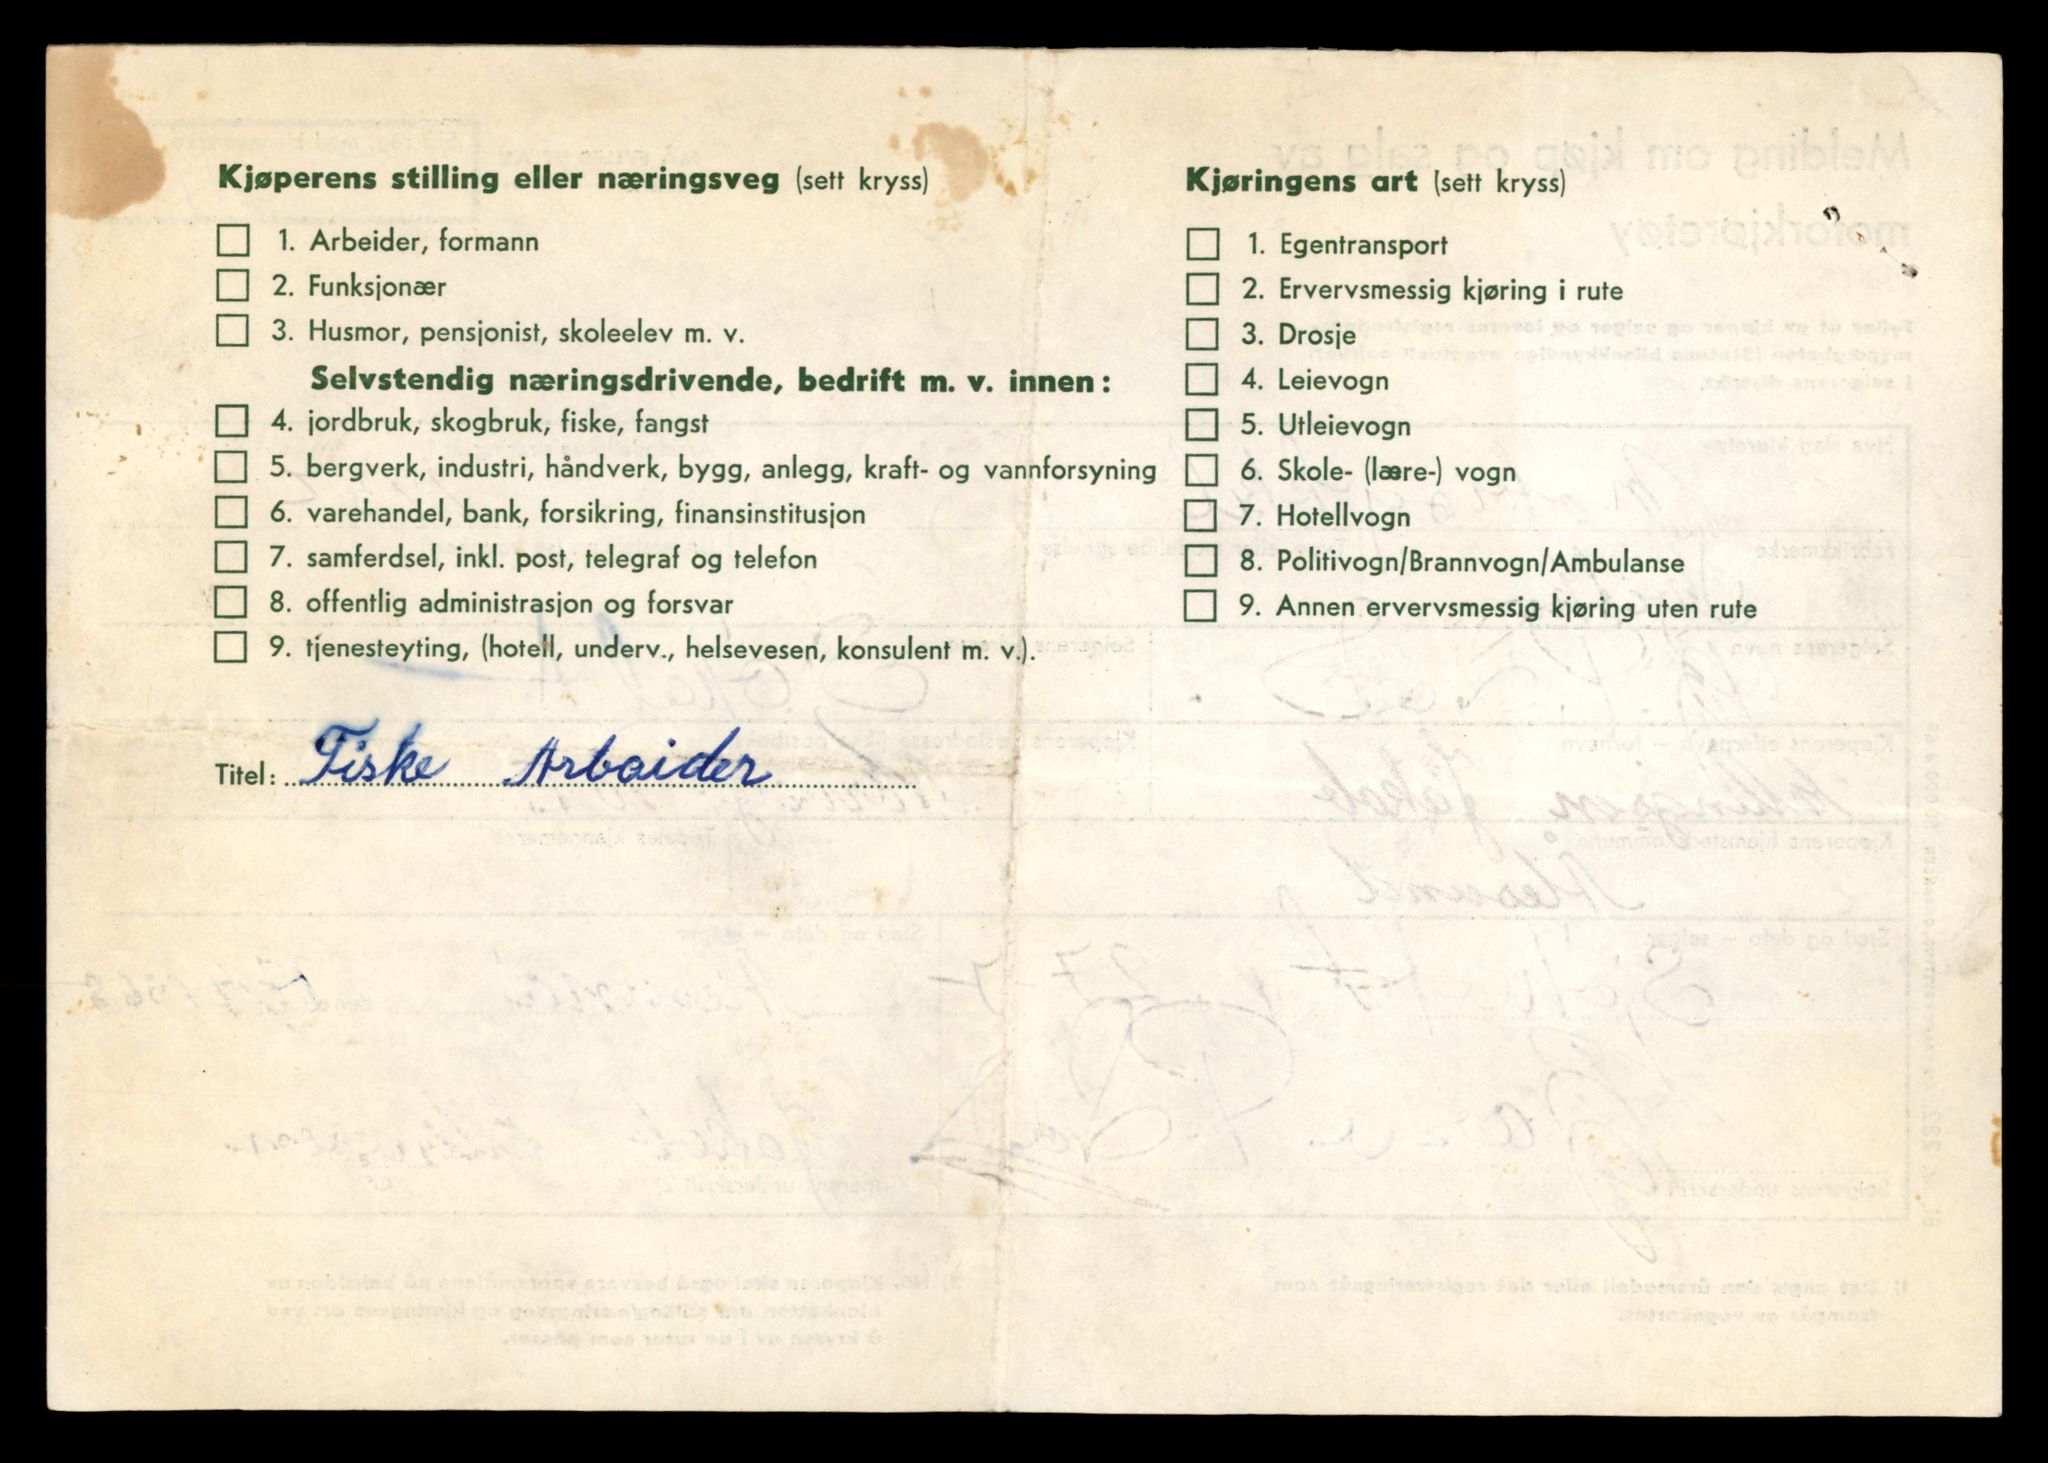 Kjøperens stilling eller næringsveg (sett kryss)
1. Arbeider, formann
2. Funksjonær
3. Husmor, pensjonist, skoleelev m. v.
Selvstendig næringsdrivende, bedrift m. v. innen:
4. jordbruk, skogbruk, fiske, fangst
5. bergverk, industri, håndverk, bygg, anlegg, kraft- og vannforsyning
6. varehandel, bank, forsikring, finansinstitusjon
7. samferdsel, inkl. post, telegraf og telefon
8. offentlig administrasjon og forsvar
9. tjenesteyting, (hotell, underv., helsevesen, konsulent m. v.).
Titel: Fiske Arbaider
Kjøringens art (sett kryss)
1. Egentransport
2. Ervervsmessig kjøring i rute
3. Drosje
4. Leievogn
5. Utleievogn
6. Skole- (lære-) vogn
7. Hotellvogn
8. Politivogn/Brannvogn/Ambulanse
9. Annen ervervsmessig kjøring uten rute